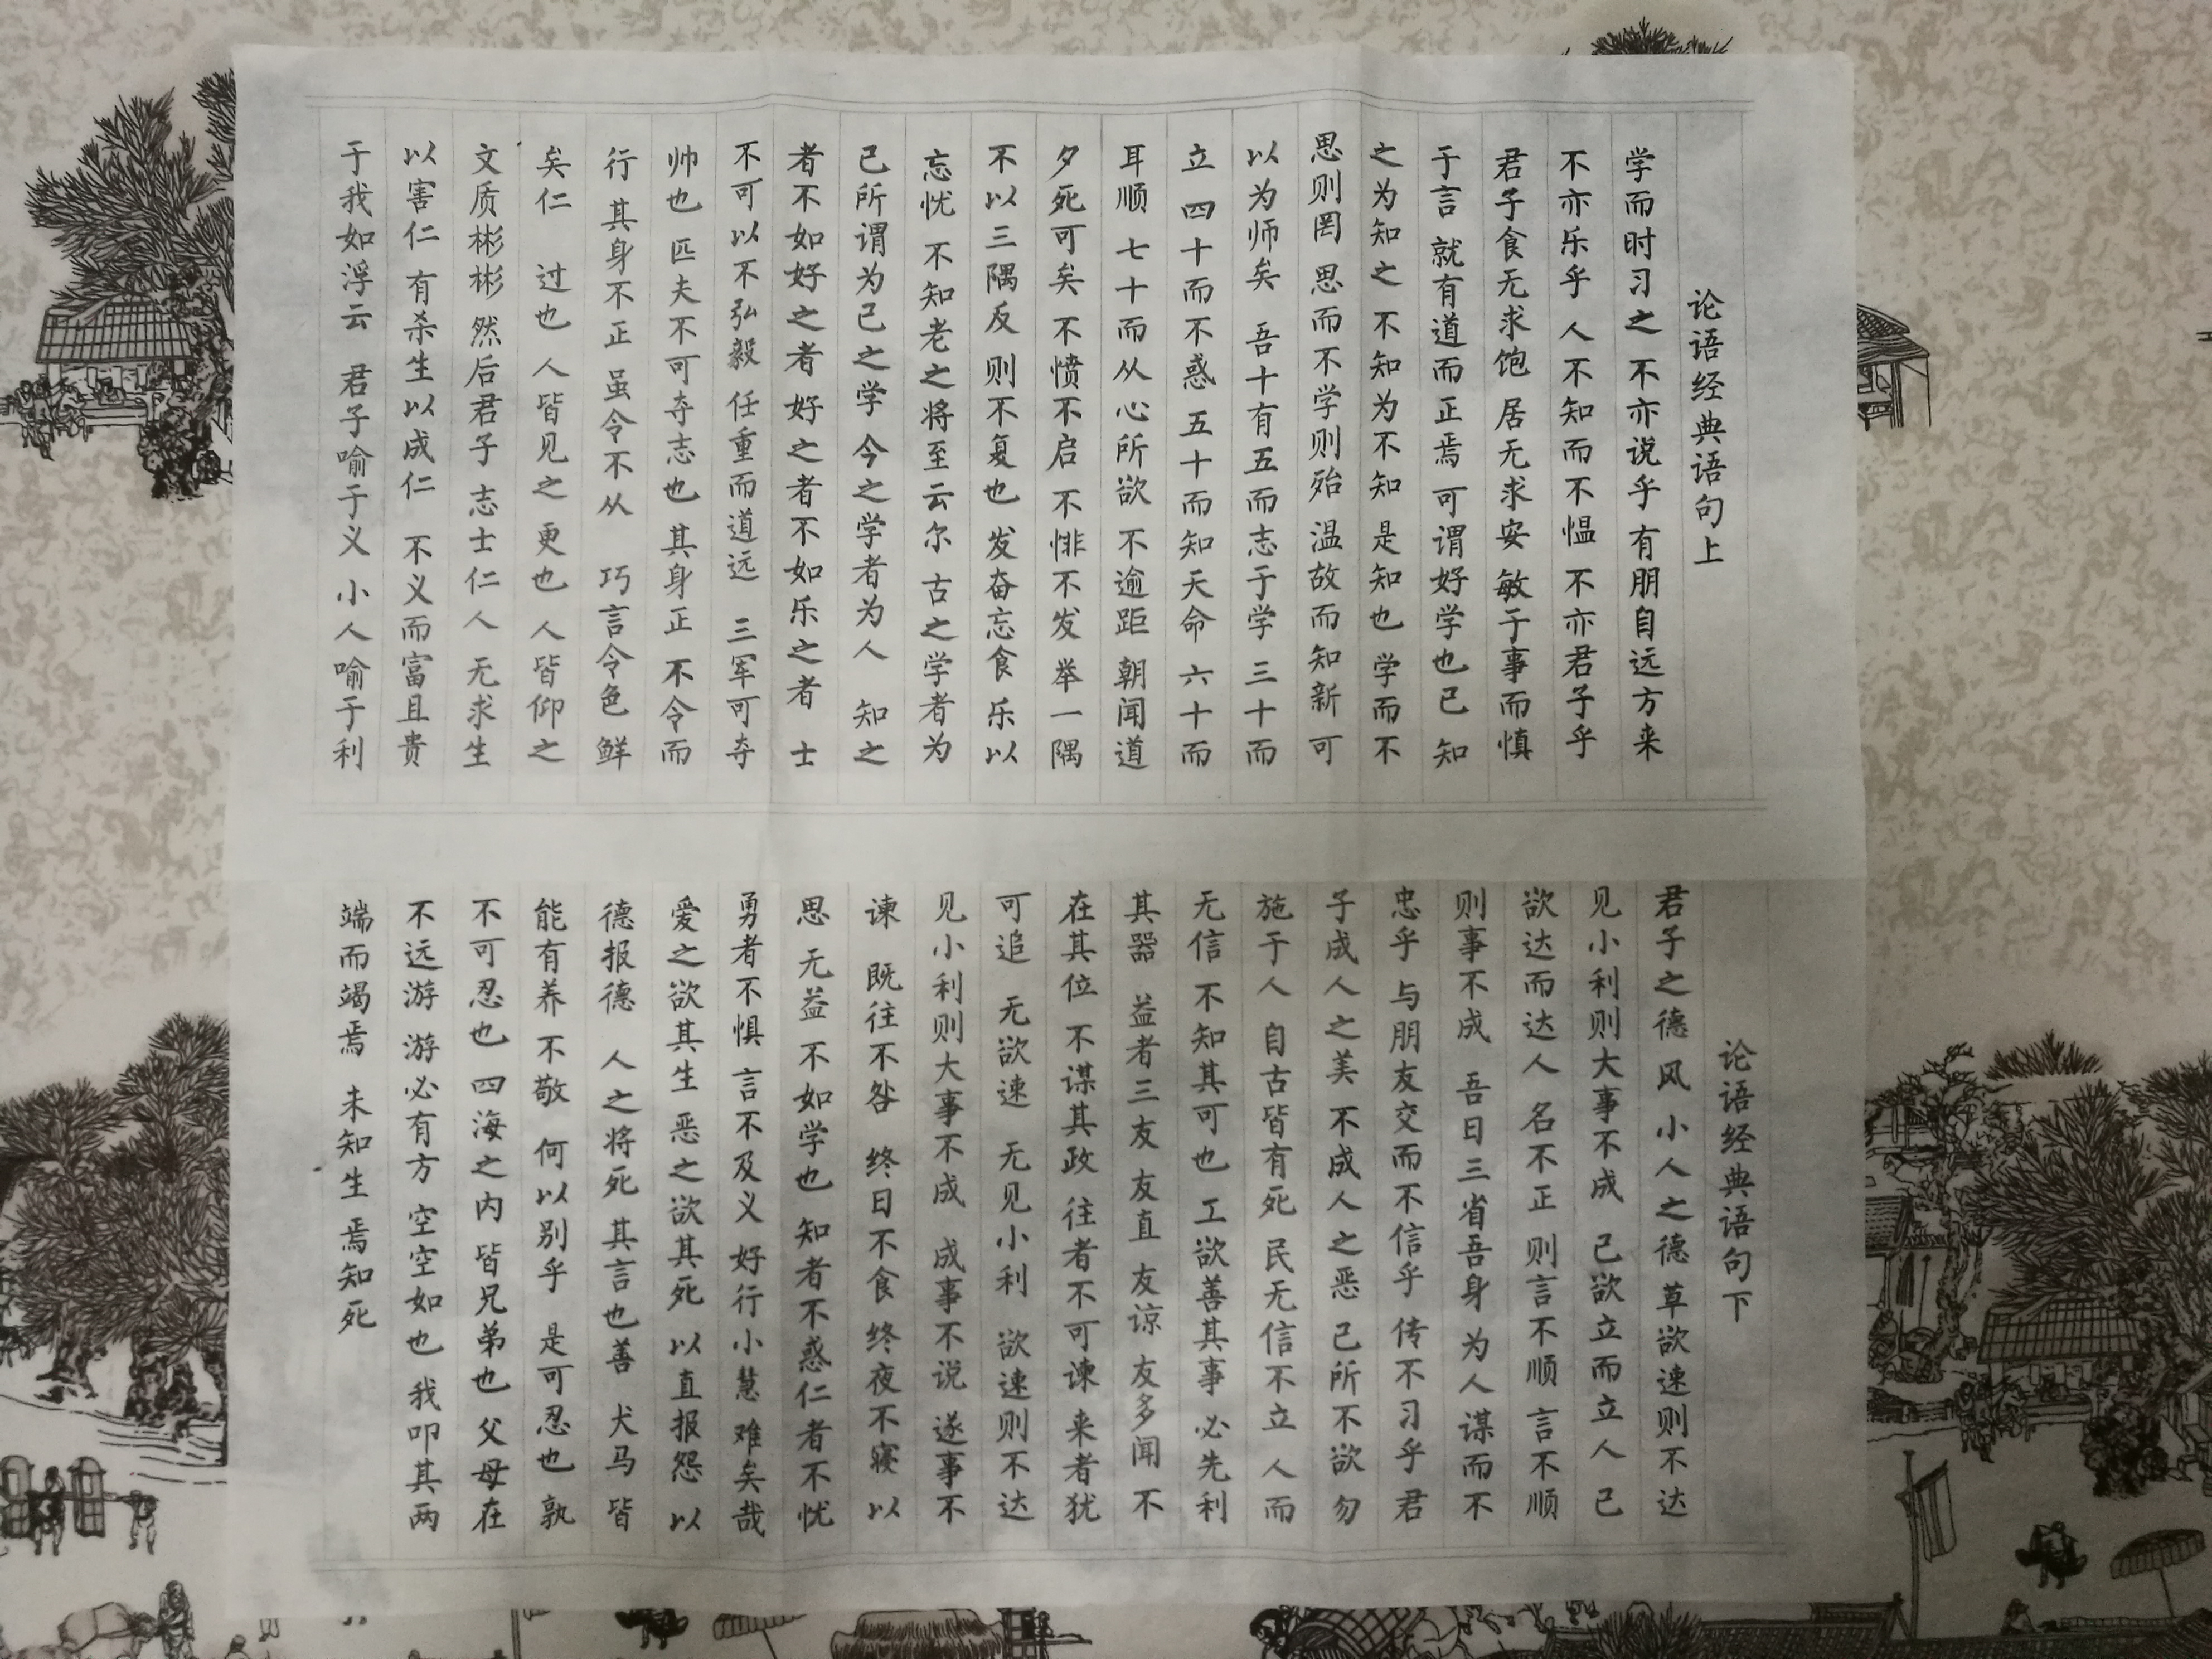 论语经典语句上
学而时习之 不亦说乎 有朋自远方来
不亦乐乎 人不知而不愠 不亦君子乎
君子食无求饱 居无求安 敏于事而慎
于言 就有道而正焉 可谓好学也已 知
之为知之 不知为不知 是知也 学而不
思则罔 思而不学则殆 温故而知新 可
以为师矣 吾十有五而志于学 三十而
立 四十而不惑 五十而知天命 六十而
耳顺 七十而从心所欲 不逾距 朝闻道
夕死可矣 不愤不启 不悱不发 举一隅
不以三隅反 则不复也 发奋忘食 乐以
忘忧 不知老之将至云尔 古之学者为
己所谓为己之学 今之学者为人 知之
者不如好之者 好之者不如乐之者 士
不可以不弘毅 任重而道远 三军可夺
帅也 匹夫不可夺志也 其身正 不令而
行 其身不正 虽令不从 巧言令色 鲜
矣仁 过也 人皆见之 更也 人皆仰之
文质彬彬 然后君子 志士仁人 无求生
以害仁 有杀生以成仁 不义而富且贵
于我如浮云 君子喻于义 小人喻于利
论语经典语句下
君子之德风 小人之德草 欲速则不达
见小利则大事不成 己欲立而立人 己
欲达而达人 名不正 则言不顺 言不顺
则事不成 吾日三省吾身 为人谋而不
忠乎 与朋友交而不信乎 传不习乎 君
子成人之美 不成人之恶 己所不欲 勿
施于人 自古皆有死 民无信不立 人而
无信 不知其可也 工欲善其事 必先利
其器 益者三友 友直 友谅 友多闻 不
在其位 不谋其政 往者不可谏 来者犹
可追 无欲速 无见小利 欲速则不达
见小利则大事不成 成事不说 遂事不
谏 既往不咎 终日不食 终夜不寝 以
思 无益 不如学也 知者不惑 仁者不忧
勇者不惧 言不及义 好行小慧 难矣哉
爱之欲其生 恶之欲其死 以直报怨 以
德报德 人之将死 其言也善 犬马 皆
能有养 不敬 何以别乎 是可忍也 孰
不可忍也 四海之内 皆兄弟也 父母在
不远游 游必有方 空空如也 我叩其两
端而竭焉 未知生 焉知死